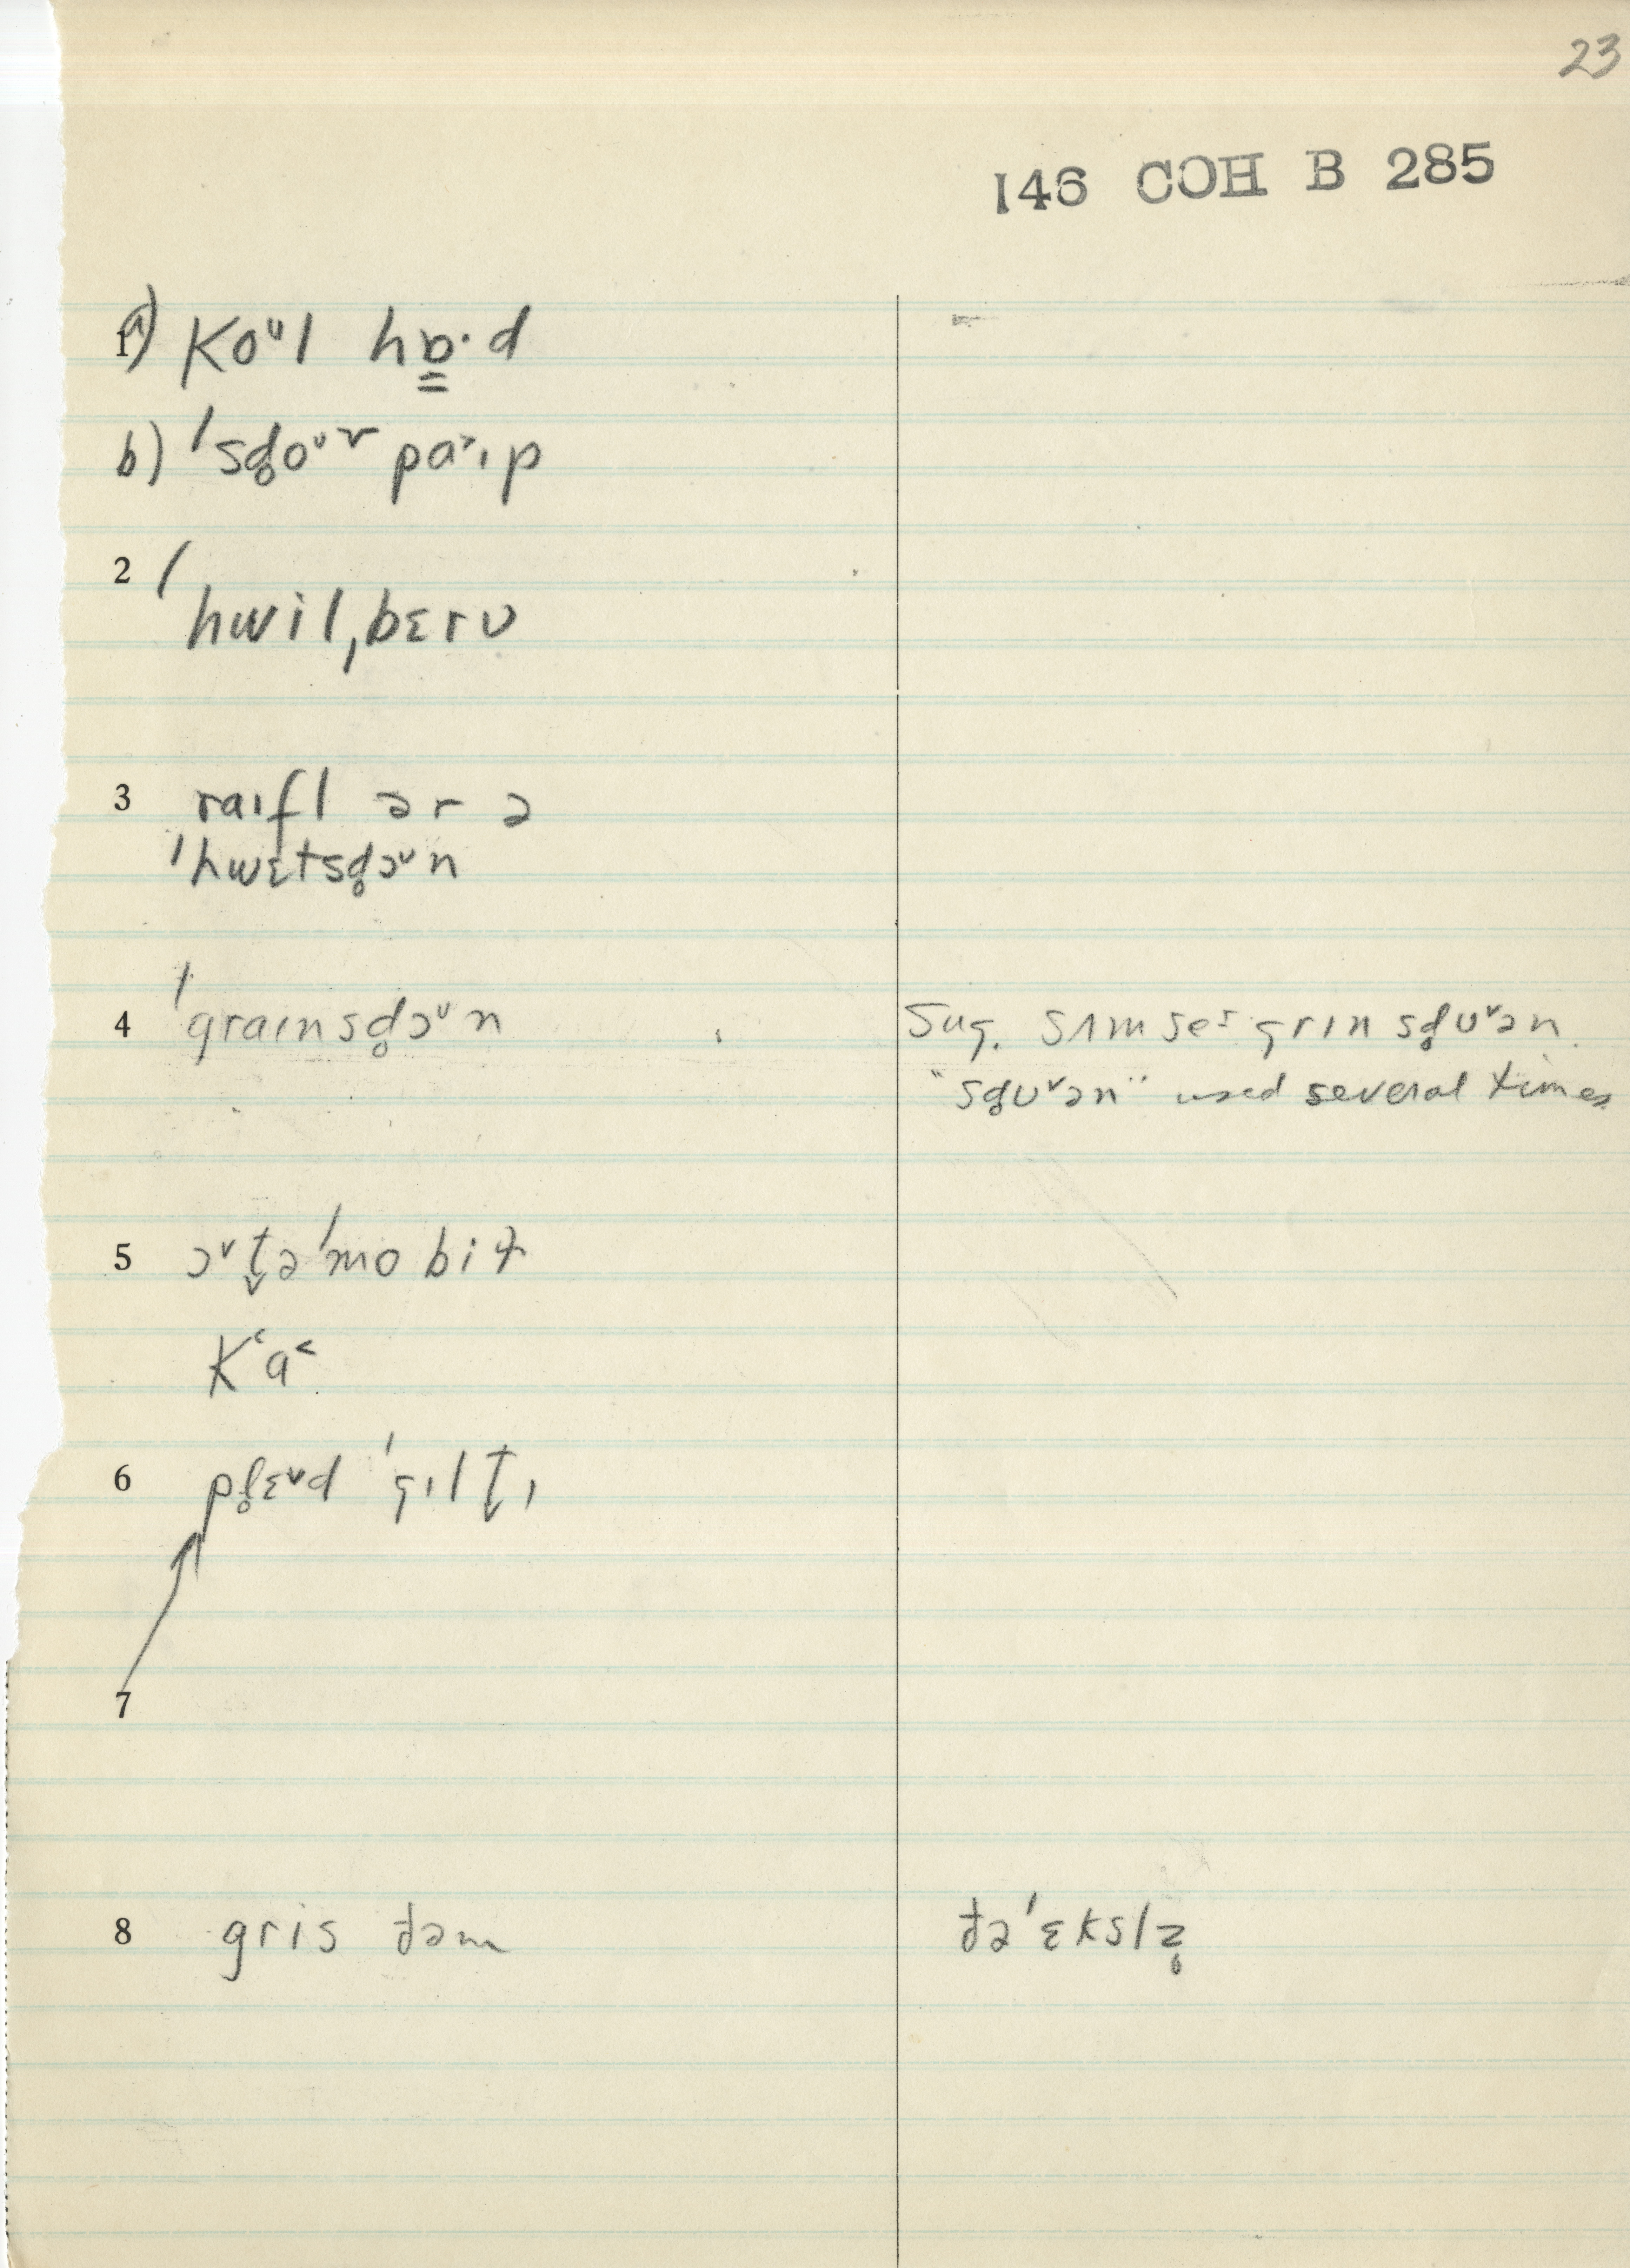 23
146 COH B 285
1 a) koᵘl hɒ̳·d
b) ˈsd̥oᵘ˅ pa˃ɪp
2 ˈhwilˌbɛrʊ
3 raɪfl ər ə
ˈhwɛtsd̥ɔ˅n
4 ˈgraɪnsd̥ɔ˅n
Sug. sʌm se˄s grɪn sd̥ʊ˅ən.
"sd̥ʊ˅ən" used several times
5 ɔ˅t̬əˈmobiɫ
kʻa˂
6 pl̥ɛ˅d ˈgɪlt̬ɪ
7
8 gris ðəm
ðə ˈɛkslz̥